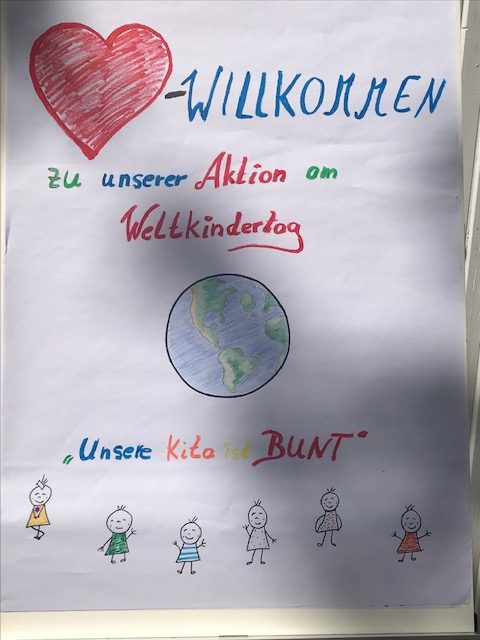 -WILLKOMMEN
zu unserer Aktion am
Weltkindertag
„Unsere Kita ist BUNT“